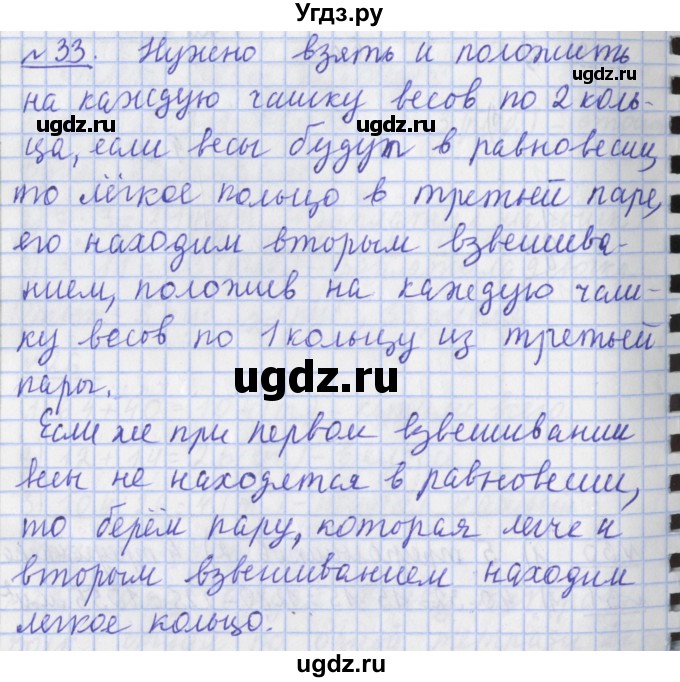 Угдз.ру
№33. Нужно взять и положить
на каждую чашку весов по 2 коль-
ца, если весы будут в равновесии,
то лёгкое кольцо в третьей паре,
его находим вторым взвешива-
нием, положив на каждую чаш-
ку весов по 1 кольцу из третьей
пары.
Если же при первом взвешивании
весы не находятся в равновесии,
то берём пару, которая легче и
вторым взвешиванием находим
легкое кольцо.
ugdz.ru
ugdz.ru
ugdz.ru
ugdz.ru
ugdz.ru
ugdz.ru
ugdz.ru
ugdz.ru
ugdz.ru